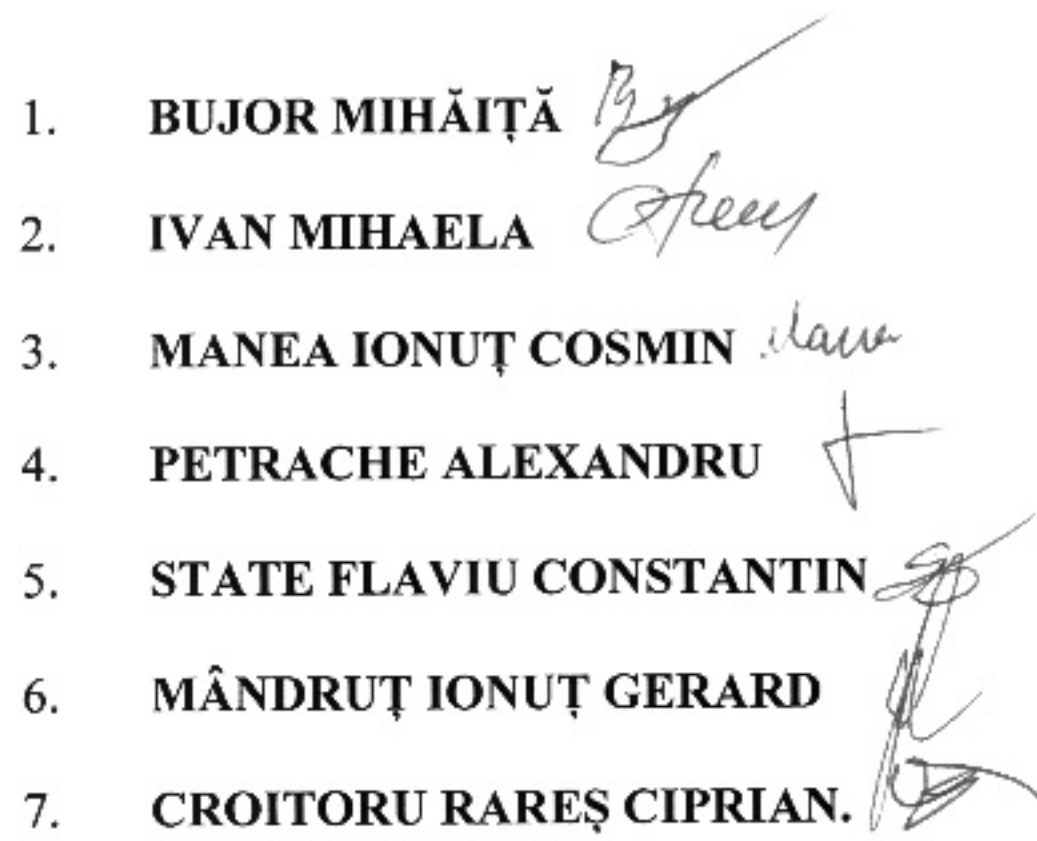 1. BUJOR MIHĂIȚĂ
2. IVAN MIHAELA
3. MANEA IONUȚ COSMIN
4. PETRACHE ALEXANDRU
5. STATE FLAVIU CONSTANTIN
6. MÂNDRUȚ IONUȚ GERARD
7. CROITORU RAREȘ CIPRIAN.